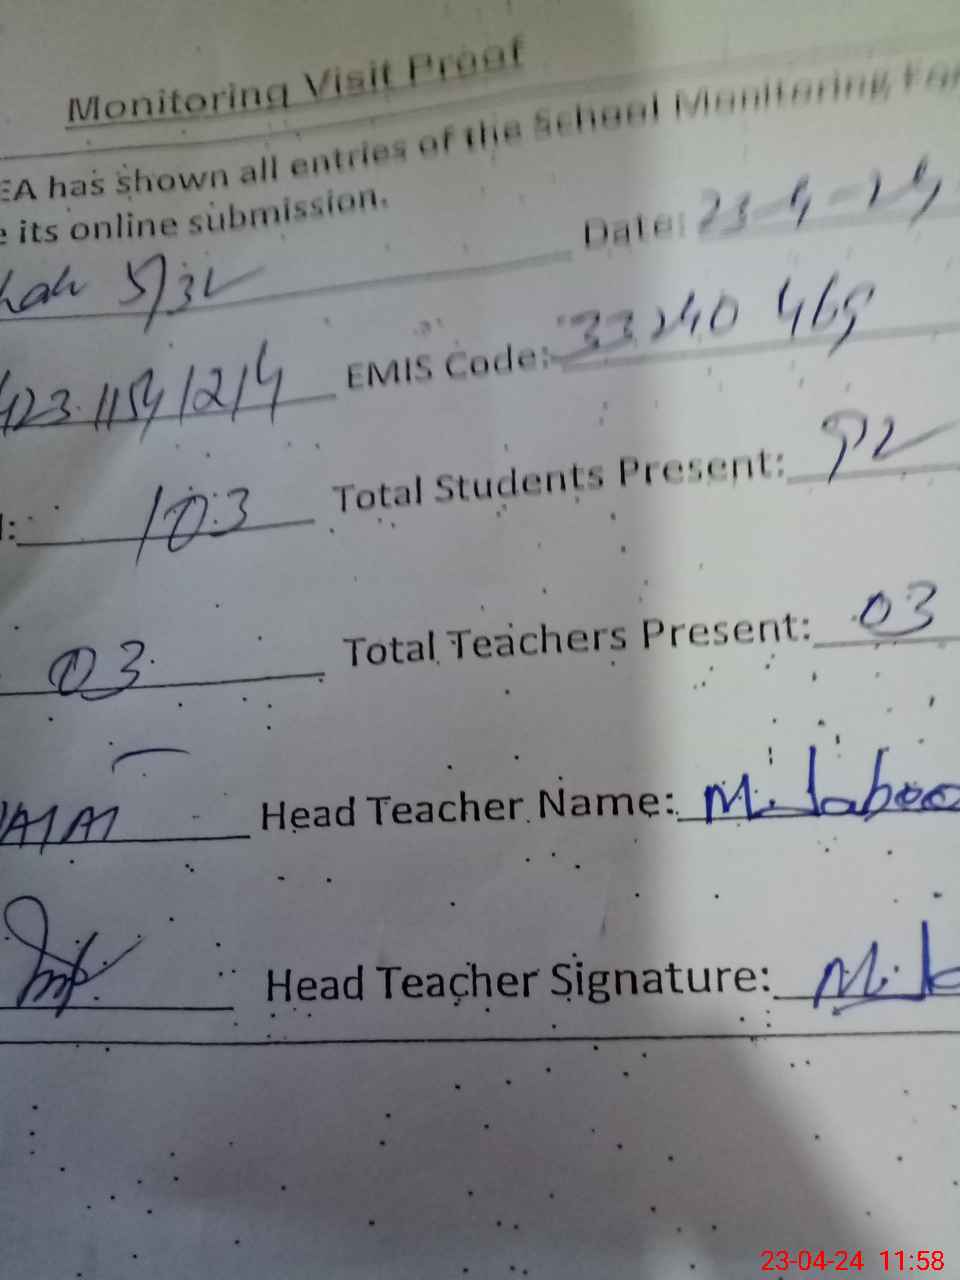 Monitoring Visit Proof
EA has shown all entries of the School Monitoring For
e its online submission.
Date: 23-4-24
5/3L
EMIS Code: 33240 469
: 103 Total Students Present: 92
03 Total Teachers Present: 03
Head Teacher Name: M. Saboo
Head Teacher Signature:
23-04-24 11:58